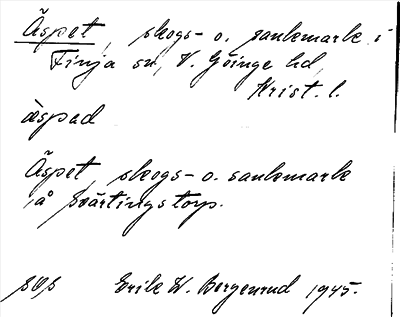 Äspet, skogs- o. sankmark i
Finja sn, V. Göinge hd,
Krist. l.
äspad
Äspet, skogs- o. sankmark
å Svärtingstorp.
Erik W. Bergenrud 1945.